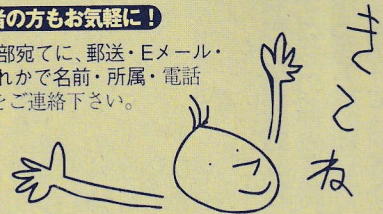 者の方もお気軽に！
部宛てに、郵送・Eメール・
れかで名前・所属・電話
をご連絡下さい。
きてね